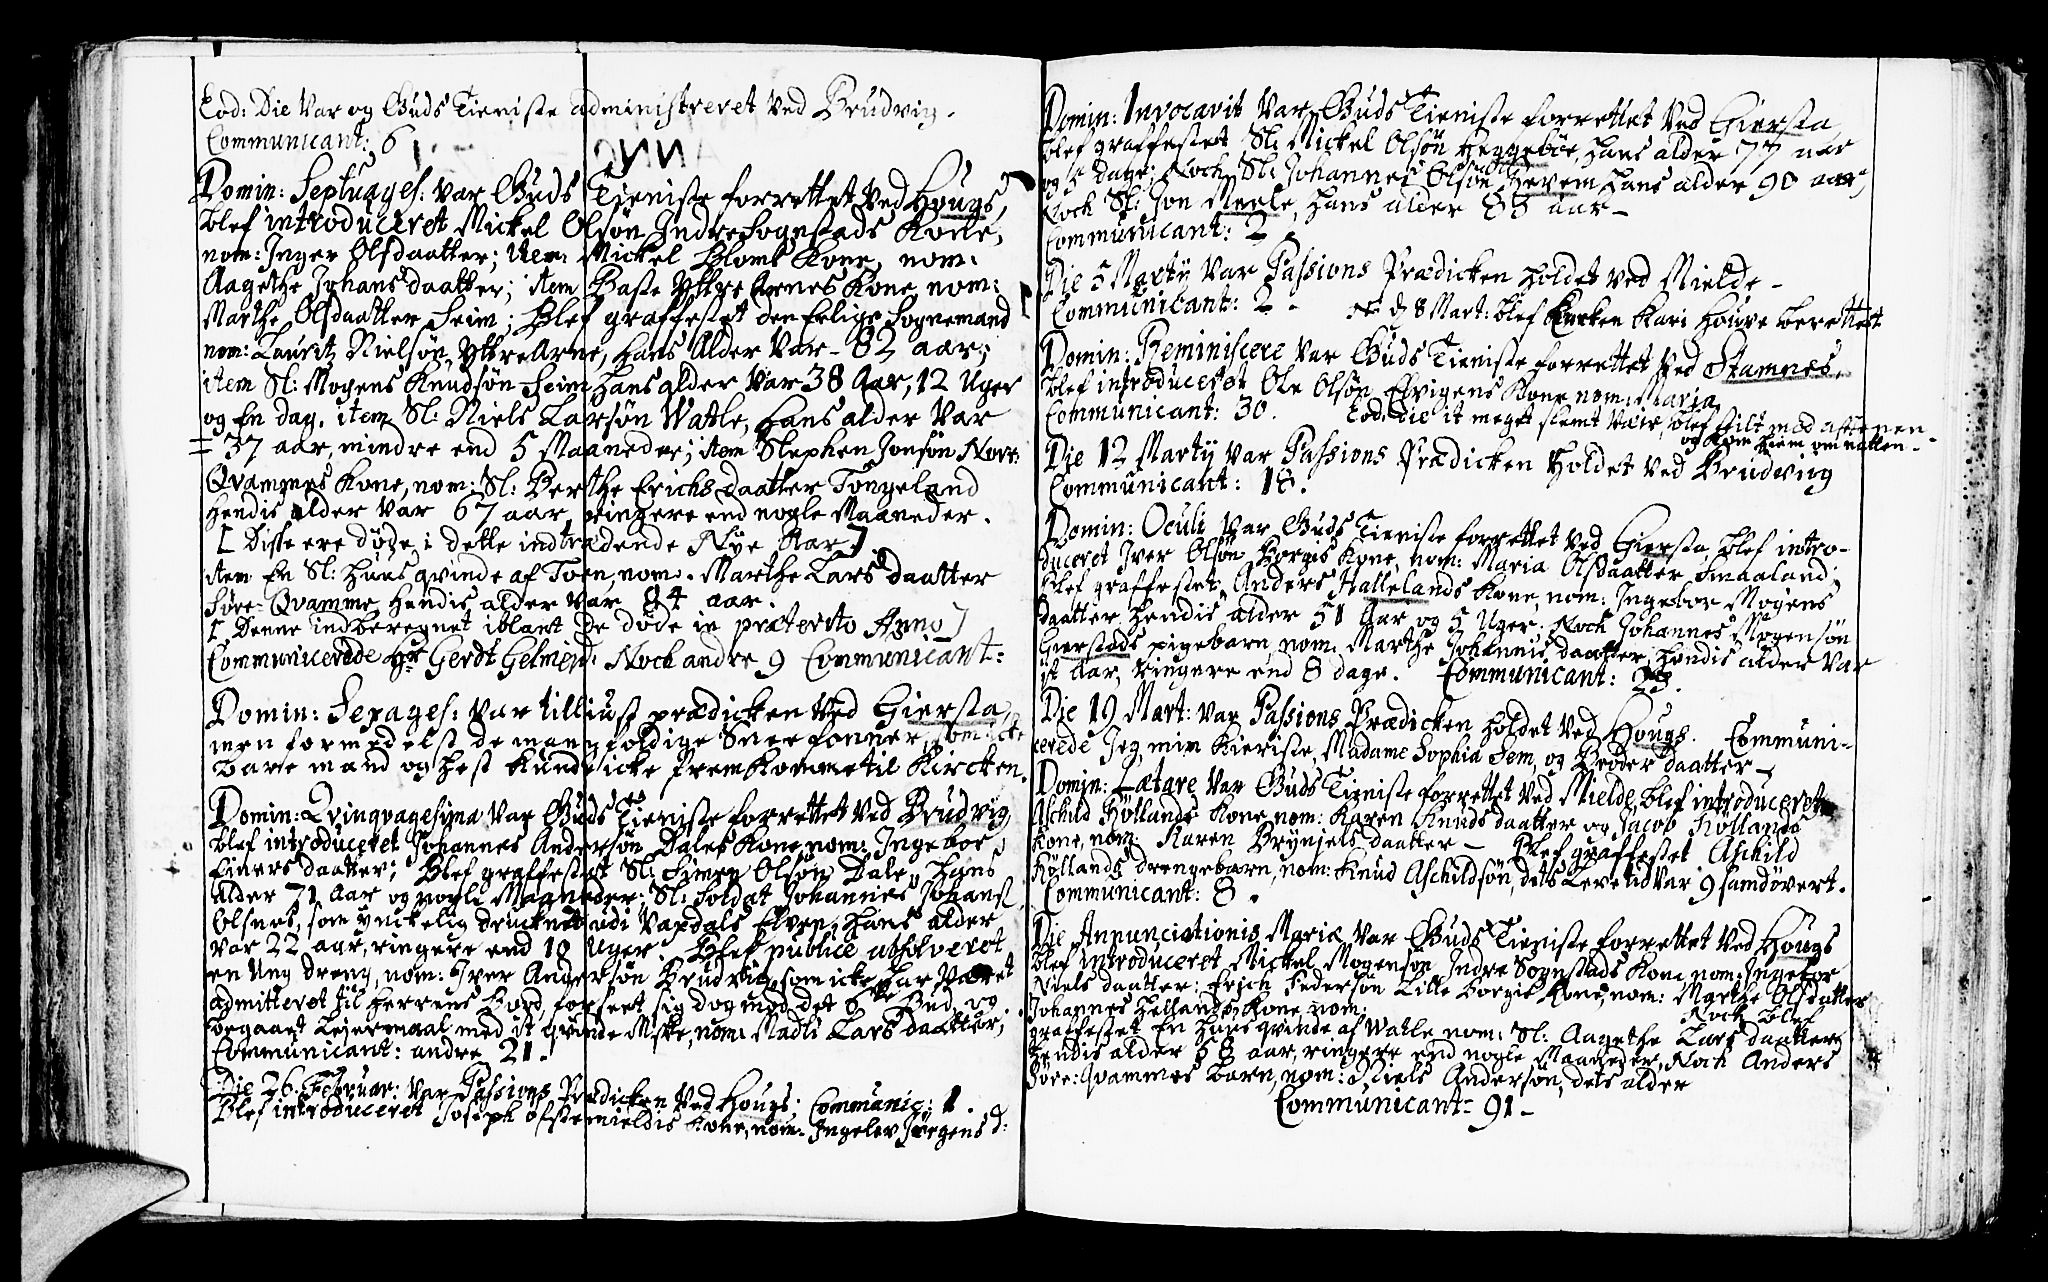 Eod: Die var og Guds Tieniste administreret ved Brudvig.
Communicant: 6
Domin: Septuages: var Guds Tieniste forrettet ved Hougs,
blef introduceret Mickel Olsøn Indre Sognstads Kone,
nom: Inger Olsdaatter; item Mickel Blomb Kone, nom:
Aagethe Johansdaatter; item Baste Yttre Arnes Kone nom:
Marthe Olsdaatter Seim; Blef graffestet den Erlige Sognemand
nom: Lauritz Nielsøn Yttre Arne, hans Alder var - 82 aar;
item Sl: Mogens Knudsøn Seim hans alder var 38 Aar, 12 Uger
og En dag. item Sl: Niels Larsøn Watle, hans alder var
= 37 aar, mindre end 5 Maaneder; item Stephen Jonsøn Norr:
Qvammes Kone, nom: Sl: Berthe Erichsdaatter Tongeland
hendis alder var 67 aar ringere end nogle Maaneder.
[ Disse ere døde i dette indtrædende Nye Aar ]
item En Sl: huusqvinde af Toen, nom: Marthe Larsdaatter
Søre-Qvamme, hendis alder var 84 aar.
[ Denne indberegnet iblant de døde in præterito Anno ]
Communicerede Hr Gerdt Gelmeyd: Noch andre 9 Communicant:
Domin: Sexages: var tilliust prædicken ved Giersta,
men formedelst de mangfoldige Sneefonner, som icke
bare mand og hest kunde icke fremkomme til Kircken.
Domin: Qvinqvagesima var Guds Tieniste forrettet ved Brudvig
blef introduceret Johannes Andersøn Dales Kone, nom: Ingebor
Einersdaatter; Blef graffestet Sl: Simen Olsøn Dale, hans
alder 71 Aar og nogle Maaneder; Sl: Soldat Johannes Johans:
Olsnes, som ynckelig drucknet udi Vaxdals Elven, hans alder
var 22 aar, ringere end 18 Uger. Blef publicè absolveret
en Ung dreng, nom: Iver Andersøn Brudvig, som icke har været
admitteret til Herrens bord, forseet sig dog mod det 6te Bud, og
begaaet Leiermaal med it qvinde Mske, nom: Madli Larsdaatter;
Communicant: andre 21.
Die 26. Februar: var Passions Prædicken ved Hougs; Communic: 1.
Blef introduceret Joseph Ofstemieldis Kone, nom: Ingelev Jørgensd:
Domin: Invocavit var Guds Tieniste forrettet ved Giersta
blef graffestet Sl: Mickel Olsøn Heggebøe, hans alder 77 aar
og 5 dage; Noch Sl: Johannes Olsøn Hevem hans alder 90 aar,
Noch Sl: Jon Meele, hans alder 83 aar -
Communicant: 2
Die 5 Martij var Passions Prædicken holdet ved Mielde -
Communicant: 2 - d 8 Mart: blef Kari Houve berettet
Domin: Reminiscere var Guds Tieniste forrettet ved Stamnes,
blef introduceret Ole Olsøn Elvigens Kone nom: Maria
Communicant: 30. Eod: die it meget slemt Væir, blef stilt mod aftenen -
og kom hiem om natten -
Die 12 Martij var Passions Prædicken holdet ved Brudvig
Communicant: 18.
Domin: Oculi var Guds Tieniste forrettet ved Giersta, blef intro-
duceret Iver Olsøn Borges Kone, nom: Maria Olsdaatter Smaaland;
blef graffestet Anders Hallelands Kone, nom: Ingebor Mogens
daatter, hendis alder 51 Aar og 5 Uger. Noch Johannes Mogensøn
Gierstads pigebarn, nom: Marthe Johannisdaatter, hendis alder var
it Aar, ringere end 8 dage. Communicant: 23.
Die 19 Mart: var Passions Prædicken holdet ved Hougs. Communi-
cerede Jeg, min Kieriste, Madame Sophia Sem, og Broder daatter -
Domin: Lætare var Guds Tieniste forrettet ved Mielde, blef introduceret
Aschild Höllands Kone, nom: Karen Knudsdaatter og Jacob Höllands
Kone, nom: Karen Brynjelsdaatter - Blef graffestet Aschild
Höllands drengebarn, nom: Knud Aschildsøn, dets Levetid var 9 samdövert.
Communicant: 8.
Die Annunciationis Mariæ var Guds Tieniste forrettet ved Hougs
blef introduceret Mickel Mogensøn Indre Sognstads Kone nom: Ingebor
Nielsdaatter; Erich Pedersøn Lille Borgis Kone, nom: Marthe Olsdatter
Johannes Hellands Kone, nom: Noch blef
graffestet En huusqvinde af Watle nom: Sl: Aagethe Larsdaatter
hendis alder 58 aar, ringere end nogle Maaneder, Noch Anders
Søre-Qvammes barn, nom: Niels Andersøn, dets alder
Communicant: 91 -